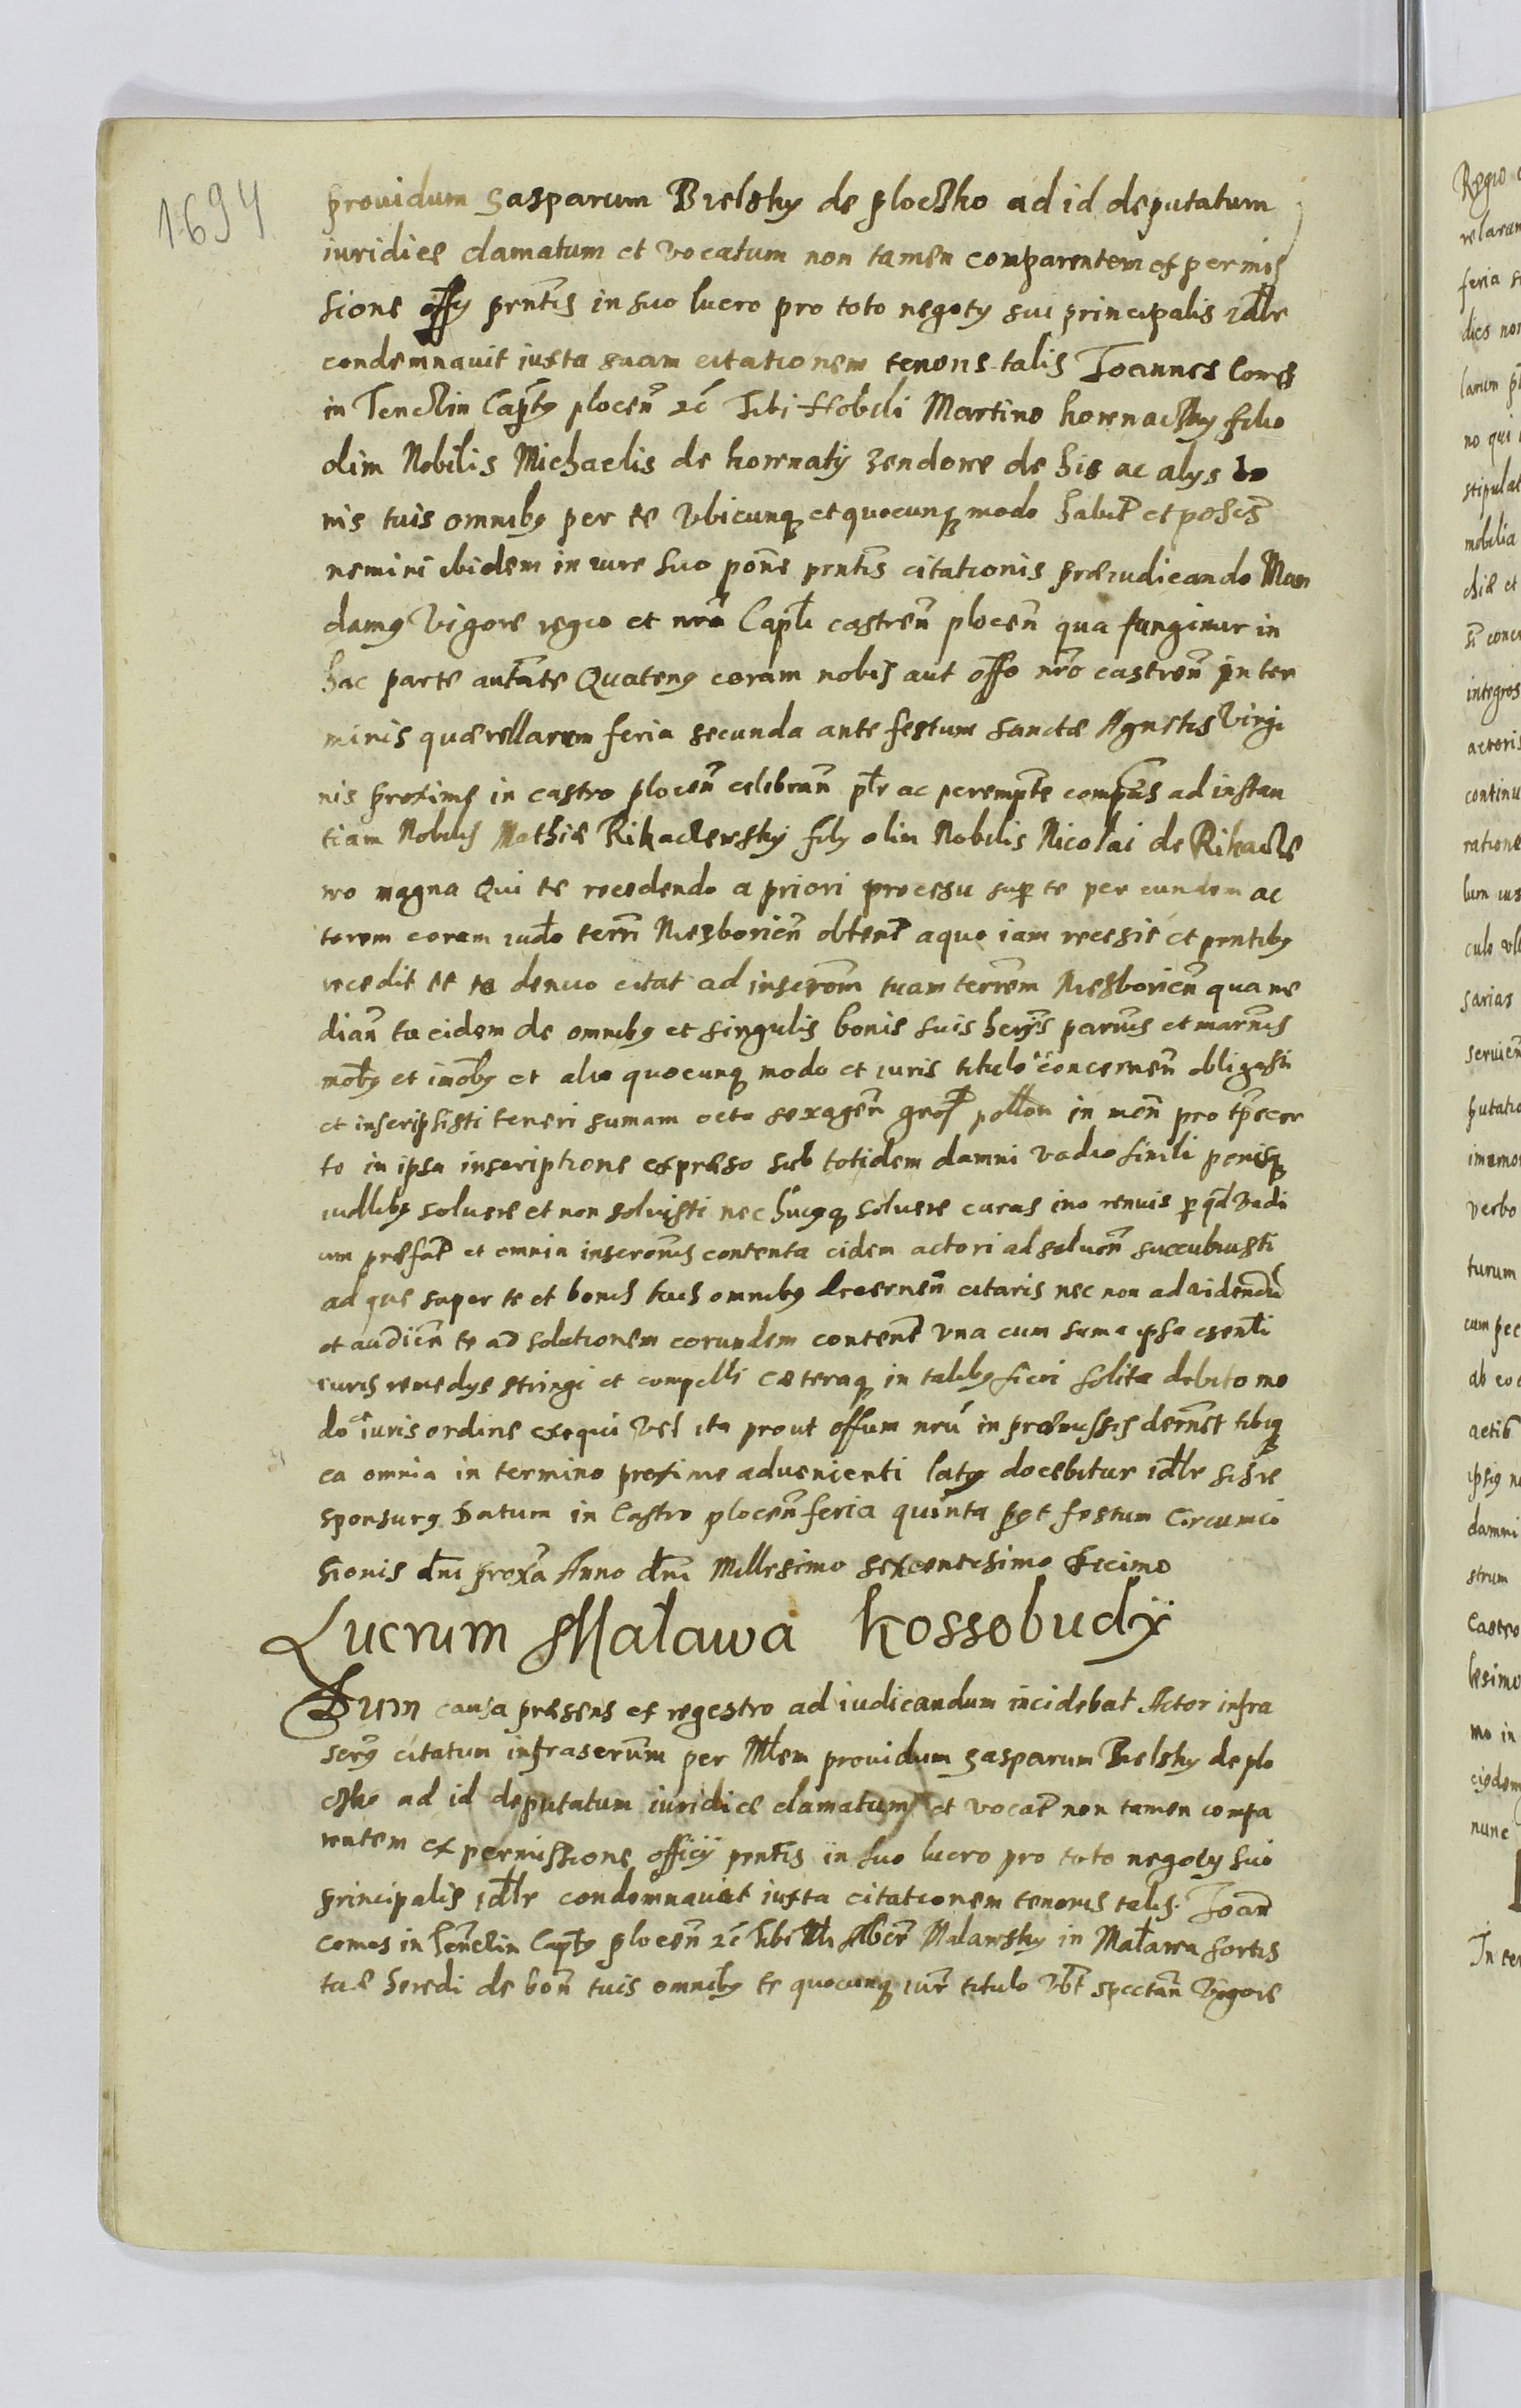 1694
prouidum Gasparum Bielsky de ploczko ad id deputatum
iuridice clamatum et vocatum non tamen comparentem ex permis
sione offy pntis in suo lucro pro toto negoty sui principalis idlr
condemnauit iuxta suam citationem tenoris talis Joannes Comes
in Tenczin Capts plocen zc Tibi Nobili Martino filio
olim Nobilis Michaelis de de his ac alys bo
nis tuis omnibus per te vbicunq et quocunq modo habit et posses
nemini ibidem in iure suo pone pntis citationis præiudicando Man
damus vigore regia et nra Capli castren plocen qua fungimur in
hac parte autate Quatenus coram nobis aut offo nro castren in ter
minis quærellarum feria secunda ante festum sanctæ Agnetis virgi
nis proxime in castro plocen celebran plr ac perempte compars ad instan
tiam Nobilis Mathiæ Rikaczewsky fily olim Nobilis Nicolai de Rikacze
wo magna Qui te recedendo a priori processu sup te per eundem ac
torem coram iudo terri Niesborien obtent a quo iam recessit et pntibus
recedit et te denuo citat ad inscrom tuam terrem Niesborien qua me
dian tu eidem de omnibus et singulis bonis suis parnis et marnis
mobs et imobs et alio quocunq modo et iuris titulo concernen obligasti
et inscripsisti teneri sumam octo sexagen gros pollon in mon pro tpe cer
to in ipsa inscriptione expræso sub totidem damni vadio simili penisq
iudlibs soluere et non soluisti nec hucusq soluere curas imo renuis p qd vadi
um præfat et omnia inscronis contenta eidem actori ad soluon succubuisti
ad que super te et bonis tuis omnibus decernen citaris nec non ad videndu
et audien te ad solutionem eorundem content vna cum suma ipsa esentli
iuris remedys stringi et compelli Cæteraq in talibus fieri solita debito mo
do et iuris ordine exequi vel ita prout offum nru in præmissis dernet tibiq
ea omnia in termino proxime aduenienti latus docebitur idlr sis re
sponsurus Datum in Castro plocen feria quinta post festum Circumci
sionis dni proxa Anno dni Millesimo sexcentesimo decimo
Lucrum Malawa Kossobudÿ
Dum causa præsens ex regestro ad iudicandum incidebat Actor infra
scrus citatum infrascrum per Mlem prouidum Gasparum Bielsky de plo
czko ad id deputatum iuridice clamatum et vocat non tamen compa
rentem ex permissione officij pntis in suo lucro pro toto negoty sui
principalis idlr condemnauit iuxta citationem tenoris talis Joan
comes in Tenczin Capts plocen zc Tibi Malawsky in Malawa sortis
tuæ heredi de bon tuis omnibus te quocunq iur titulo vbt spectan vigore